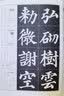 弘砌樹雲
勅微謝空